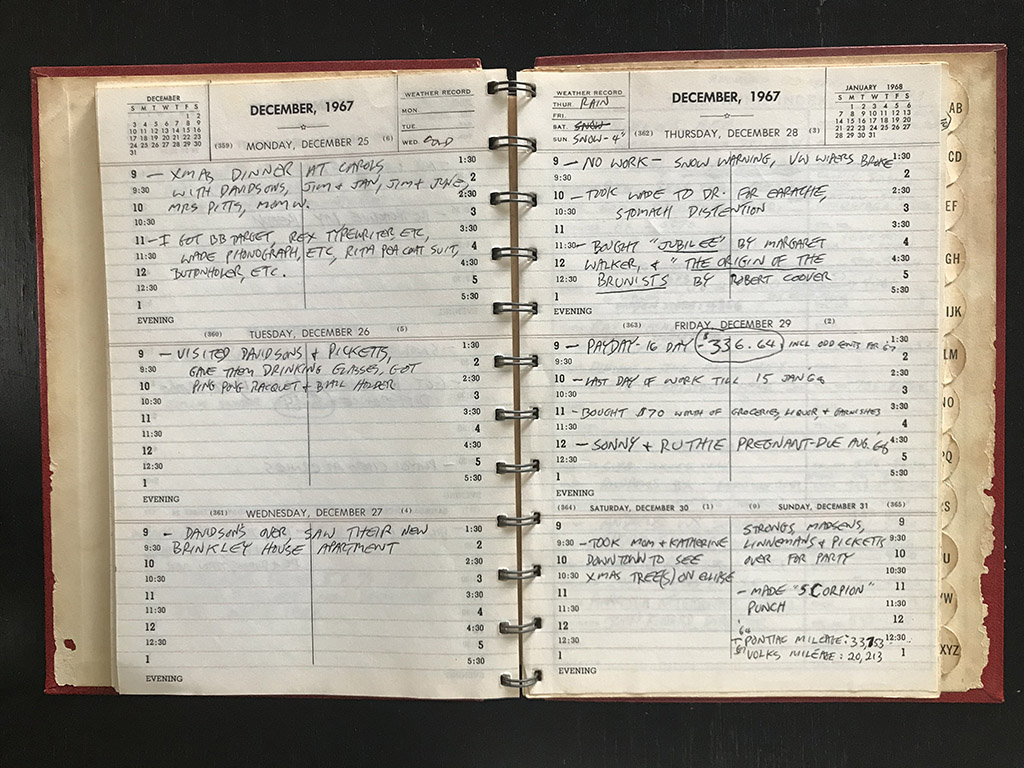 DECEMBER
S M T W T F S
1 2
3 4 5 6 7 8 9
10 11 12 13 14 15 16
17 18 19 20 21 22 23
24 25 26 27 28 29 30
31
DECEMBER, 1967
WEATHER RECORD
MON.
TUE.
WED. COLD
(359) MONDAY, DECEMBER 25 (6)
9 – XMAS DINNER AT CAROLS 1:30
9:30 WITH DAVIDSONS, JIM + JAN, JIM + JUNE, 2
10 MRS PITTS, MOM W. 2:30
10:30 3
11 – I GOT BB TARGET, REX TYPEWRITER ETC, 3:30
11:30 WADE PHONOGRAPH, ETC, RITA PEA COAT SUIT, 4
12 BUTONHOLER, ETC. 4:30
12:30 5
1 5:30
EVENING
(360) TUESDAY, DECEMBER 26 (5)
9 – VISITED DAVIDSONS & PICKETTS, 1:30
9:30 GAVE THEM DRINKING GLASSES, GOT 2
10 PING PONG RACQUET & BALL HOLDER 2:30
10:30 3
11 3:30
11:30 4
12 4:30
12:30 5
1 5:30
EVENING
(361) WEDNESDAY, DECEMBER 27 (4)
9 – DAVIDSON'S OVER, SAW THEIR NEW 1:30
9:30 BRINKLEY HOUSE APARTMENT 2
10 2:30
10:30 3
11 3:30
11:30 4
12 4:30
12:30 5
1 5:30
EVENING
WEATHER RECORD
THUR. RAIN
FRI.
SAT. SNOW
SUN. SNOW-4"
DECEMBER, 1967
JANUARY 1968
S M T W T F S
1 2 3 4 5 6
7 8 9 10 11 12 13
14 15 16 17 18 19 20
21 22 23 24 25 26 27
28 29 30 31
(362) THURSDAY, DECEMBER 28 (3)
9 – NO WORK – SNOW WARNING, VW WIPERS BROKE 1:30
9:30 2
10 – TOOK WADE TO DR. FOR EARACHE, 2:30
10:30 STOMACH DISTENTION 3
11 3:30
11:30 – BOUGHT "JUBILEE" BY MARGARET 4
12 WALKER, & "THE ORIGIN OF THE 4:30
12:30 BRUNISTS BY ROBERT COOVER 5
1 5:30
EVENING
(363) FRIDAY, DECEMBER 29 (2)
9 – PAYDAY – 16 DAY $336.64 INCL ODD CENTS FOR 67 1:30
9:30 2
10 – LAST DAY OF WORK TILL 15 JAN 68 2:30
10:30 3
11 – BOUGHT $70 WORTH OF GROCERIES, LIQUOR, & GARNISHES 3:30
11:30 4
12 – SONNY & RUTHIE PREGNANT – DUE AUG. '68 4:30
12:30 5
1 5:30
EVENING
(364) SATURDAY, DECEMBER 30 (1)
9
9:30 – TOOK MOM & KATHERINE
10 DOWNTOWN TO SEE
10:30 XMAS TREE(S) ON ELLIPSE
11
11:30
12
12:30
1
EVENING
(0) SUNDAY, DECEMBER 31 (365)
STRONGS, MADSENS, 9
LINNEMANS & PICKETTS 9:30
OVER FOR PARTY 10
10:30
– MADE "SCORPION" 11
PUNCH 11:30
12
'64 PONTIAC MILEAGE: 33,753 12:30
'67 VOLKS MILEAGE: 20,213 1
AB
CD
EF
GH
IJK
LM
NO
PQ
RS
U
VW
XYZ